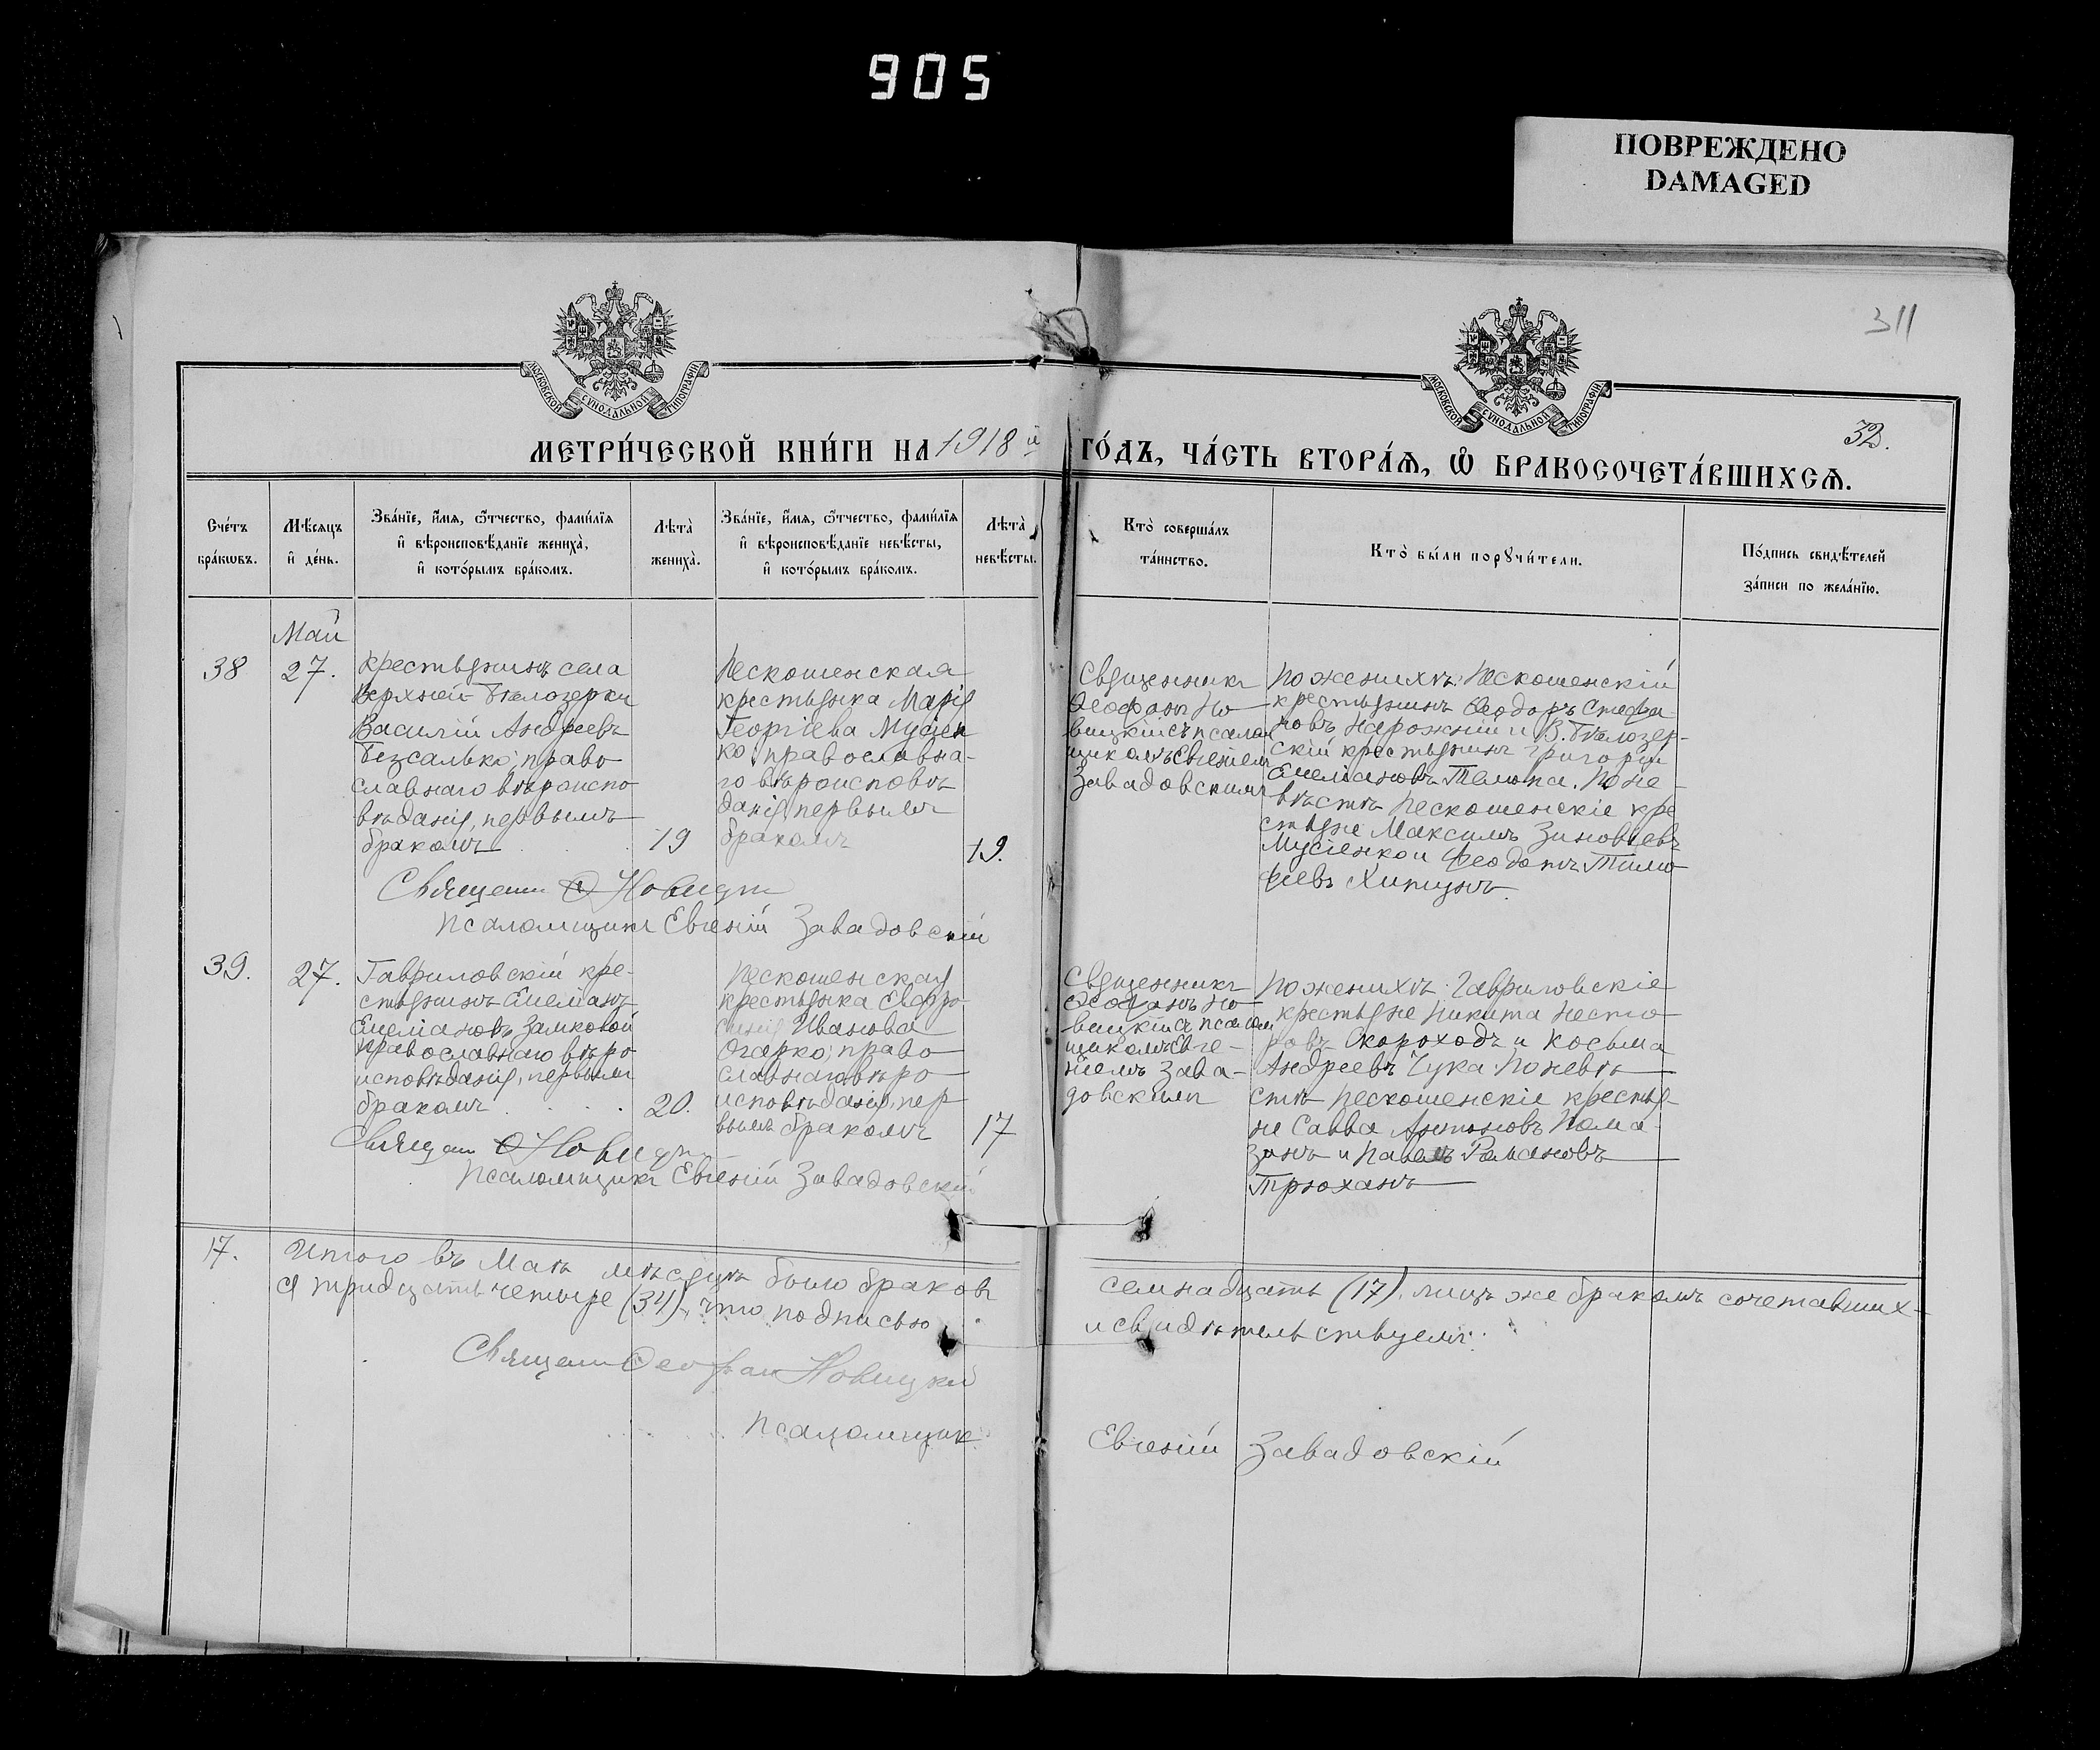 905
ПОВРЕЖДЕНО
DAMAGED
311
МОСКОВСКОЙ СУНОДАЛЬНОЙ ТИПОГРАФІИ
МОСКОВСКОЙ СУНОДАЛЬНОЙ ТИПОГРАФІИ
32.
МЕТРИ́ЧЕСКОЙ КНИ́ГИ НА 1918й ГО́ДЪ, ЧА́СТЬ ВТОРА́Ѧ, Ѽ БРАКОСОЧЕТА́ВШИХСѦ.
Сче́тъ
бра́кѡвъ.
Мѣ́сяцъ
и҆ де́нь.
Зва́нїе, и҆́мя, ѻ҆́тчество, фами́лїя
и҆ вѣроисповѣ́данїе жениха̀,
и҆ кото́рымъ бра́комъ.
Лѣта̀
жениха̀.
Зва́нїе, и҆́мя, ѻ҆́тчество, фами́лїя
и҆ вѣроисповѣ́данїе невѣ́сты,
и҆ кото́рымъ бра́комъ.
Лѣта̀
невѣ́сты.
Кто̀ соверша́лъ
та́инство.
Кто̀ бы́ли порꙋчи́тели.
По́дпись свидѣ́телей
за́писи по жела́нїю.
Май
38
27.
Крестьянинъ села
Верхней-Бѣлозерки
Василій Андреевъ
Безсалько; право
славнаго вѣроиспо
вѣданія, первымъ
бракомъ
19
Пескошенская
крестьянка Марія
Георгіева Мусіен
ко; православна-
го вѣроисповѣ
данія, первымъ
бракомъ
19.
Священникъ
Ѳеофанъ Но
вицкій съ псалом
щикомъ Евгеніем
Завадовскимъ
По женихѣ: Пескошенскій
крестьянинъ Ѳеодоръ Стефа-
новъ Нарожній и В. Бѣлозер-
скій крестьянинъ Григорій
Емеліановъ Телюпа. По не-
вѣстѣ Пескошенскіе кре
стьяне Максимъ Зиновіевъ
Мусіенко и Феодотъ Тимо
феевъ Хитунъ.
Священник Ѳ Новицкі
Псаломщикъ Евгеній Завадовскій
39.
27.
Гавриловскій кре-
стьянинъ Емеліанъ
Емеліановъ Замковой
православнаго вѣро
исповѣданія, первымъ
бракомъ
20.
Пескошенская
крестьянка Евфро
синія Иванова
Огарко; право
славнаго вѣро
исповѣданія, пер
вымъ бракомъ
17
Священникъ
Ѳеофанъ Но
вицкій съ псалом
щикомъ Евге-
ніемъ Зава-
довскимъ
По женихѣ: Гавриловскіе
крестьяне Никита Несто
ровъ Скороходъ и Косьма
Андреевъ Чука. По невѣ
стѣ Пескошенскіе крестья-
не Савва Антоновъ Пома-
занъ и Павелъ Романовъ
Трюханъ
Священ Ѳ Новицкі
Псаломщикъ Евгеній Завадовскій
17.
Итого въ Маѣ мѣсяцѣ было браковъ семнадцать (17), лицъ же бракомъ сочетавших-
ся тридцать четыре (34), что подписью и свидѣтельствуемъ:
Священ Ѳеофан Новицкій
Псаломщик Евгеній Завадовскій